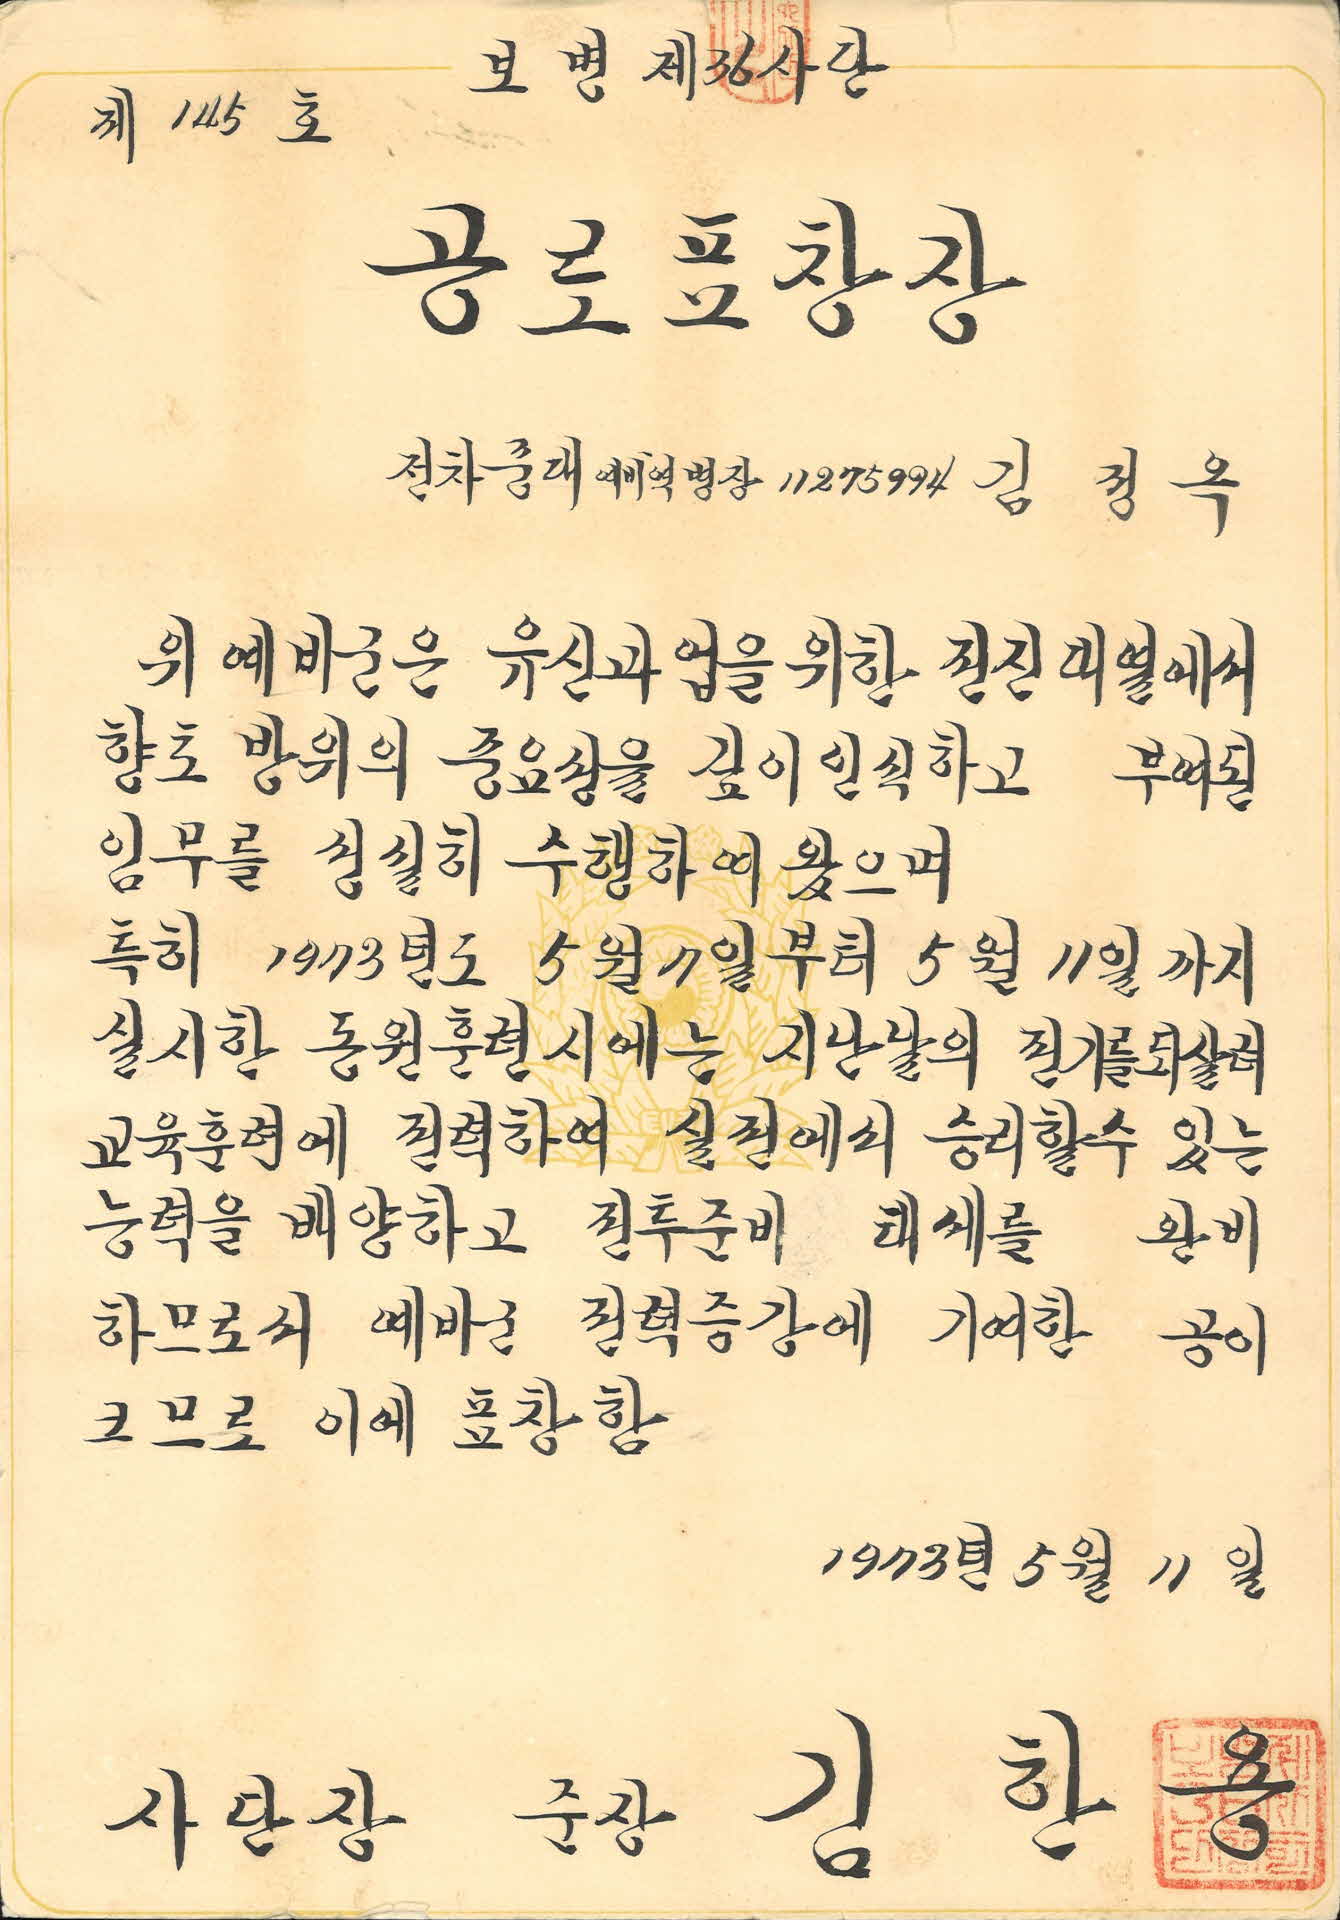 보병 제36사단
제 145 호
공로표창장
전차중대 예비역 병장 11275994 김 정 옥
위 예비군은 유신과업을 위한 전진 대열에서
향토 방위의 중요성을 깊이 인식하고 부여된
임무를 성실히 수행하여 왔으며
특히 1973년도 5월 7일부터 5월 11일까지
실시한 동원훈련시에는 지난날의 전기를되살려
교육훈련에 전력하여 실전에서 승리할수 있는
능력을 배양하고 전투준비 태세를 완비
하므로서 예비군 전력증강에 기여한 공이
크므로 이에 표창함
1973년 5월 11일
사단장 준장 김 한 용